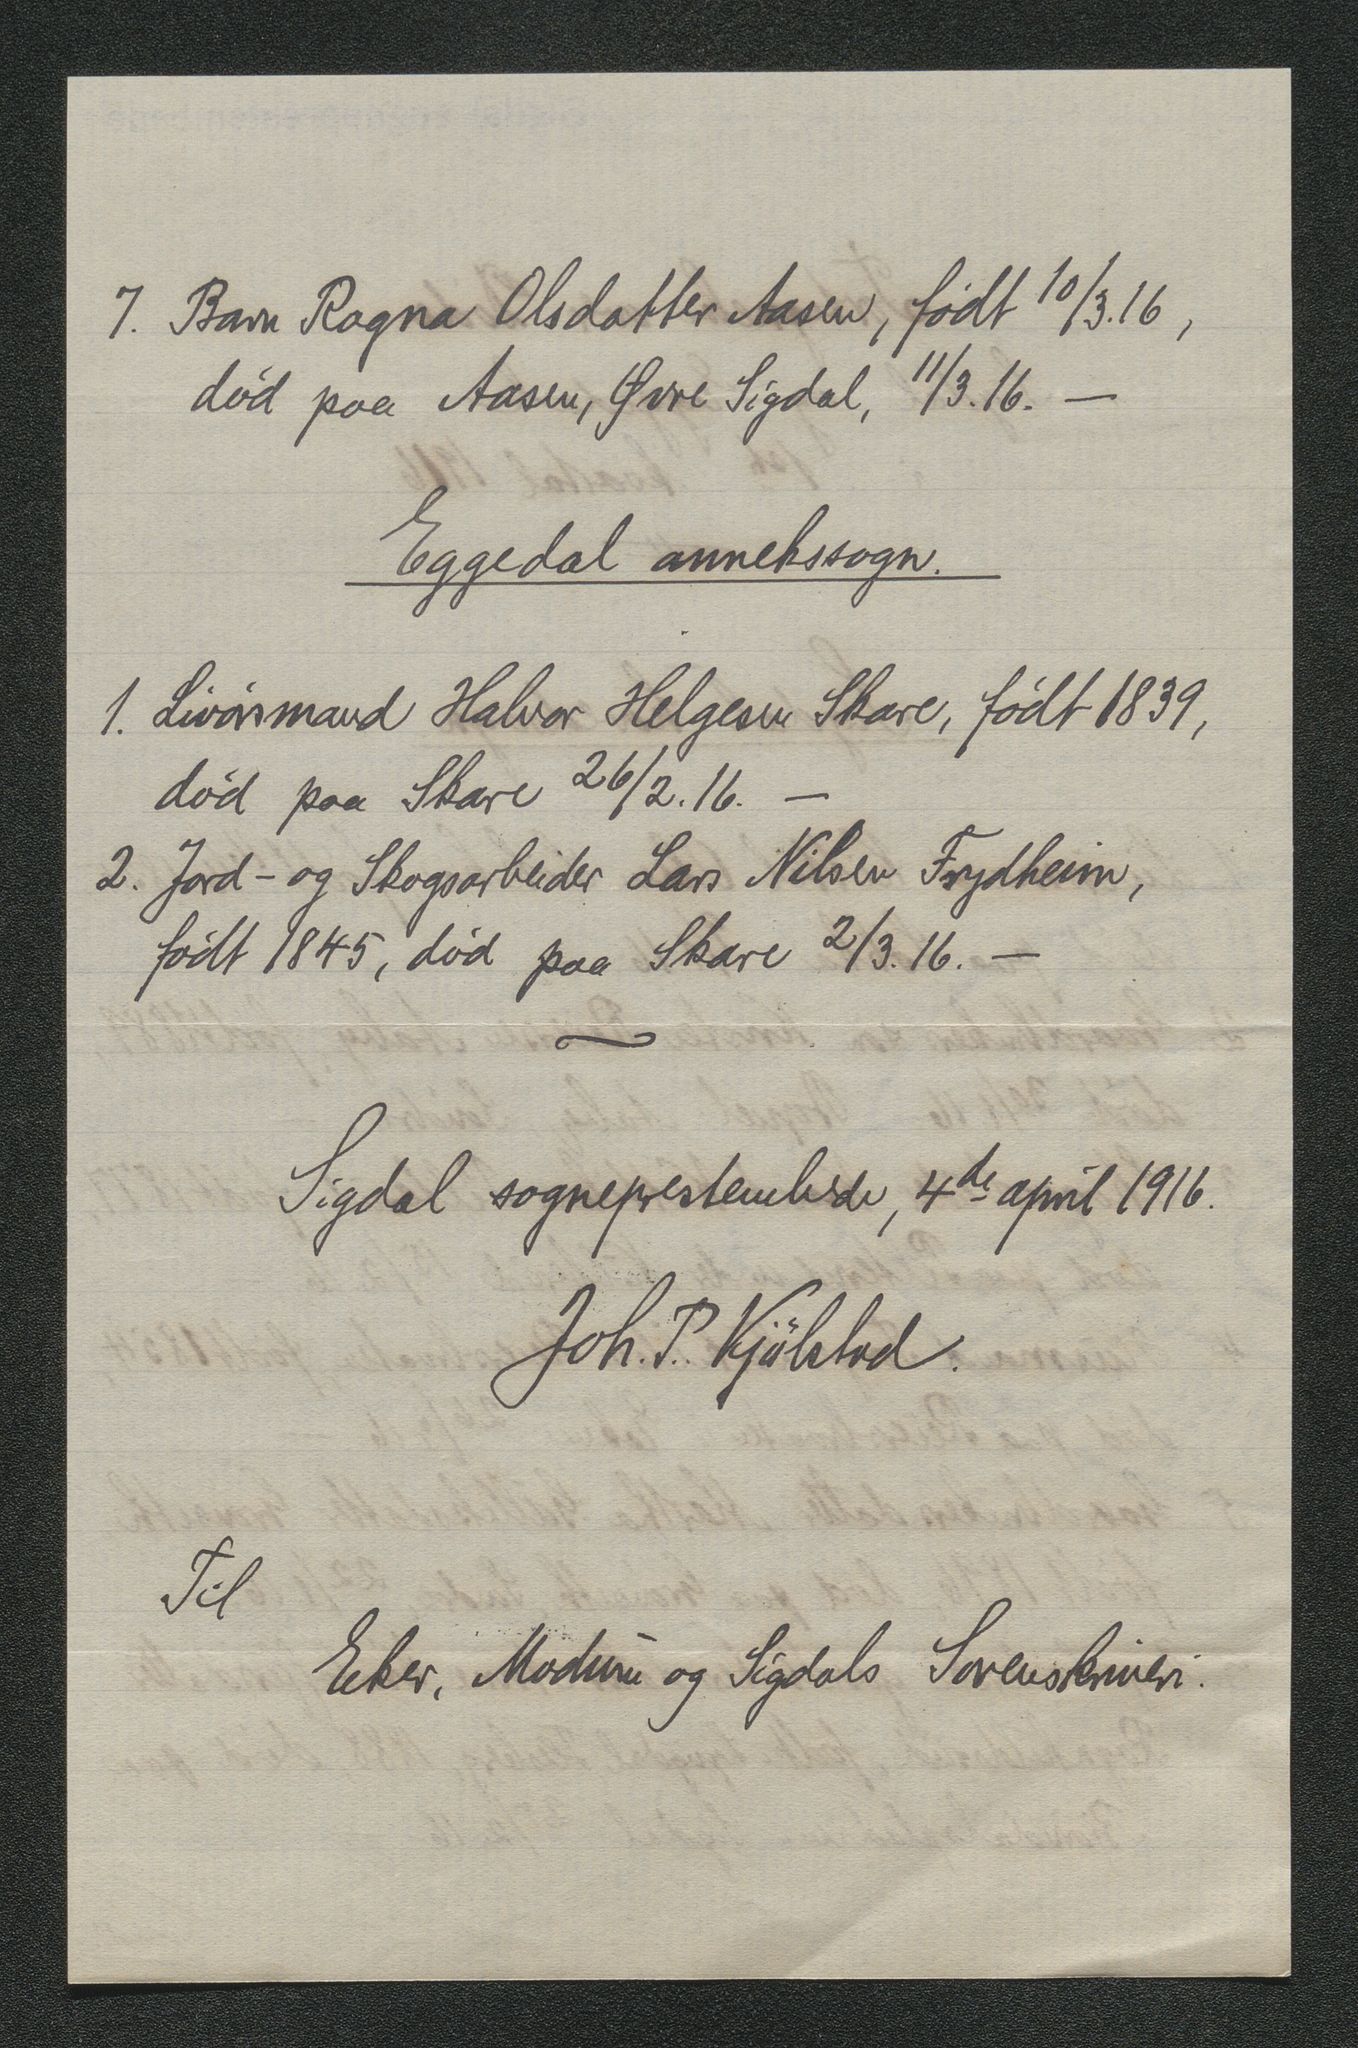 7. Barn Ragna Olsdatter Aasen, født 10/3.16,
død paa Aasen, Øvre Sigdal, 11/3.16. —
Eggedal annekssogn.
1. Livörsmand Halvor Helgesen Skare, født 1839,
død paa Skare 26/2.16. —
2. Jord- og Skogsarbeider Lars Nilsen Frydheim,
født 1845, død paa Skare 2/3.16. —
Sigdal sogneprestembede, 4de april 1916.
Joh. P. Kjölstad.
Til
Eker, Modum og Sigdals Sorenskriveri.